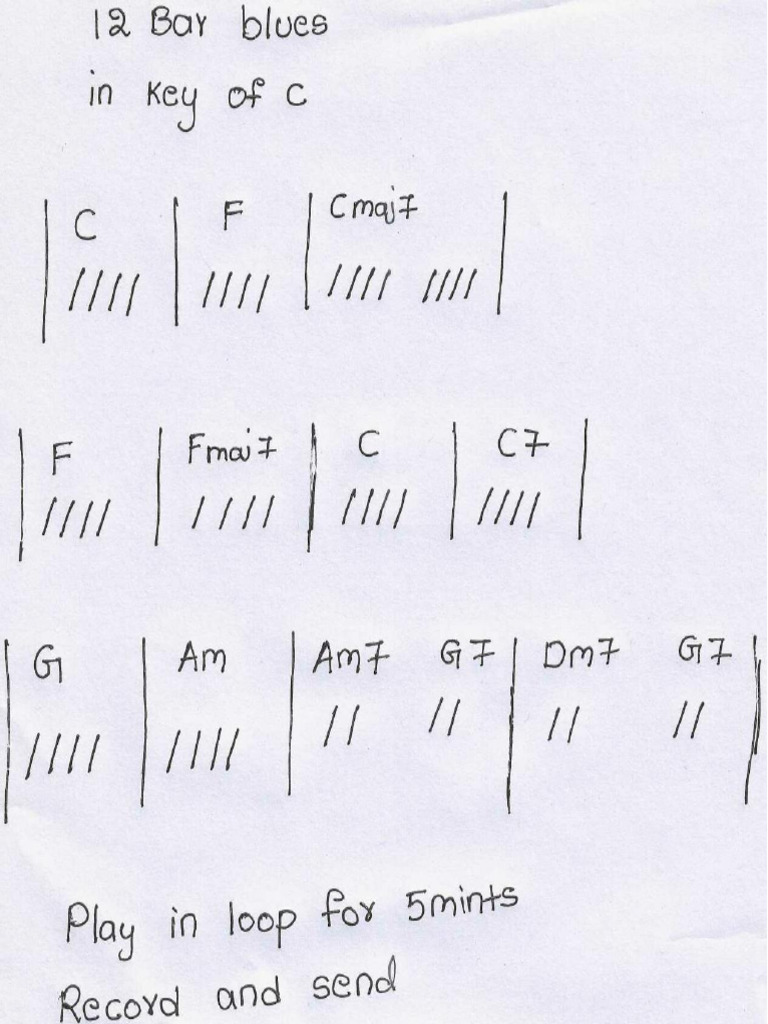 12 Bar blues
in Key of C
| C | F | Cmaj7 |
//// //// //// ////
| F | Fmaj7 | C | C7 |
//// //// //// ////
| G | Am | Am7 G7 | Dm7 G7 |
//// //// // // // //
Play in loop for 5mints
Record and send